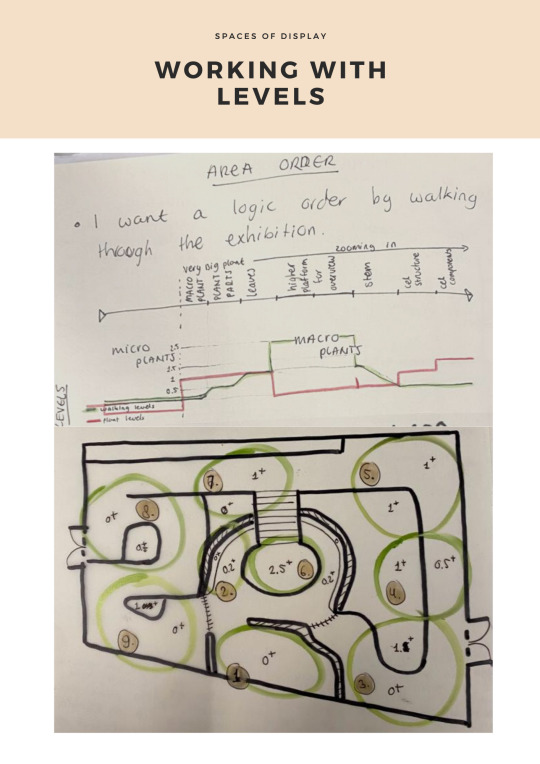 SPACES OF DISPLAY
WORKING WITH
LEVELS
AREA ORDER
• I want a logic order by walking
through the exhibition.
zooming in
very big plant
MACRO PLANT
PLANT PARTS
leaves
higher platform for overview
stem
cel structure
cel components
MICRO PLANTS
MACRO PLANTS
2.5
1.5
1
0.5
LEVELS
walking levels
plant levels
7.
1+
5.
1+
1+
8.
0+
0+
0.2+
2.
2.5+
6.
0.2+
1+
0.5+
4.
9.
0+
0+
1.
3.
0+